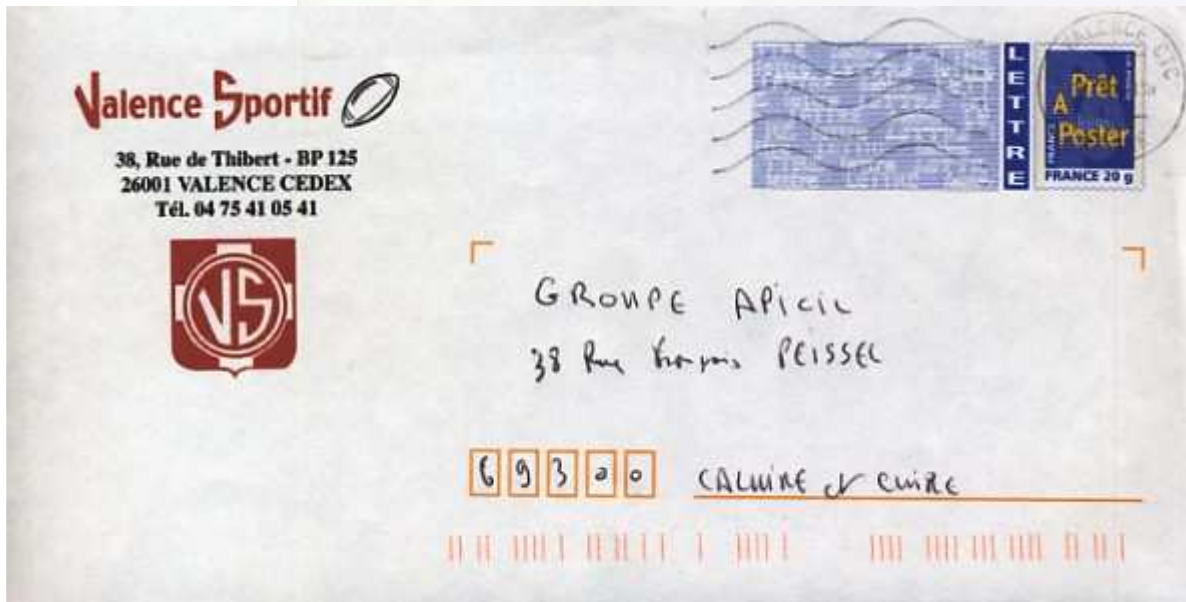 Valence Sportif
38, Rue de Thibert - BP 125
26001 VALENCE CEDEX
Tél. 04 75 41 05 41
VS
LETTRE
Prêt
A
Poster
FRANCE
FRANCE 20 g
VALENCE CTC
GROUPE APICIL
38 Rue François PEISSEL
69300 CALUIRE et CUIRE